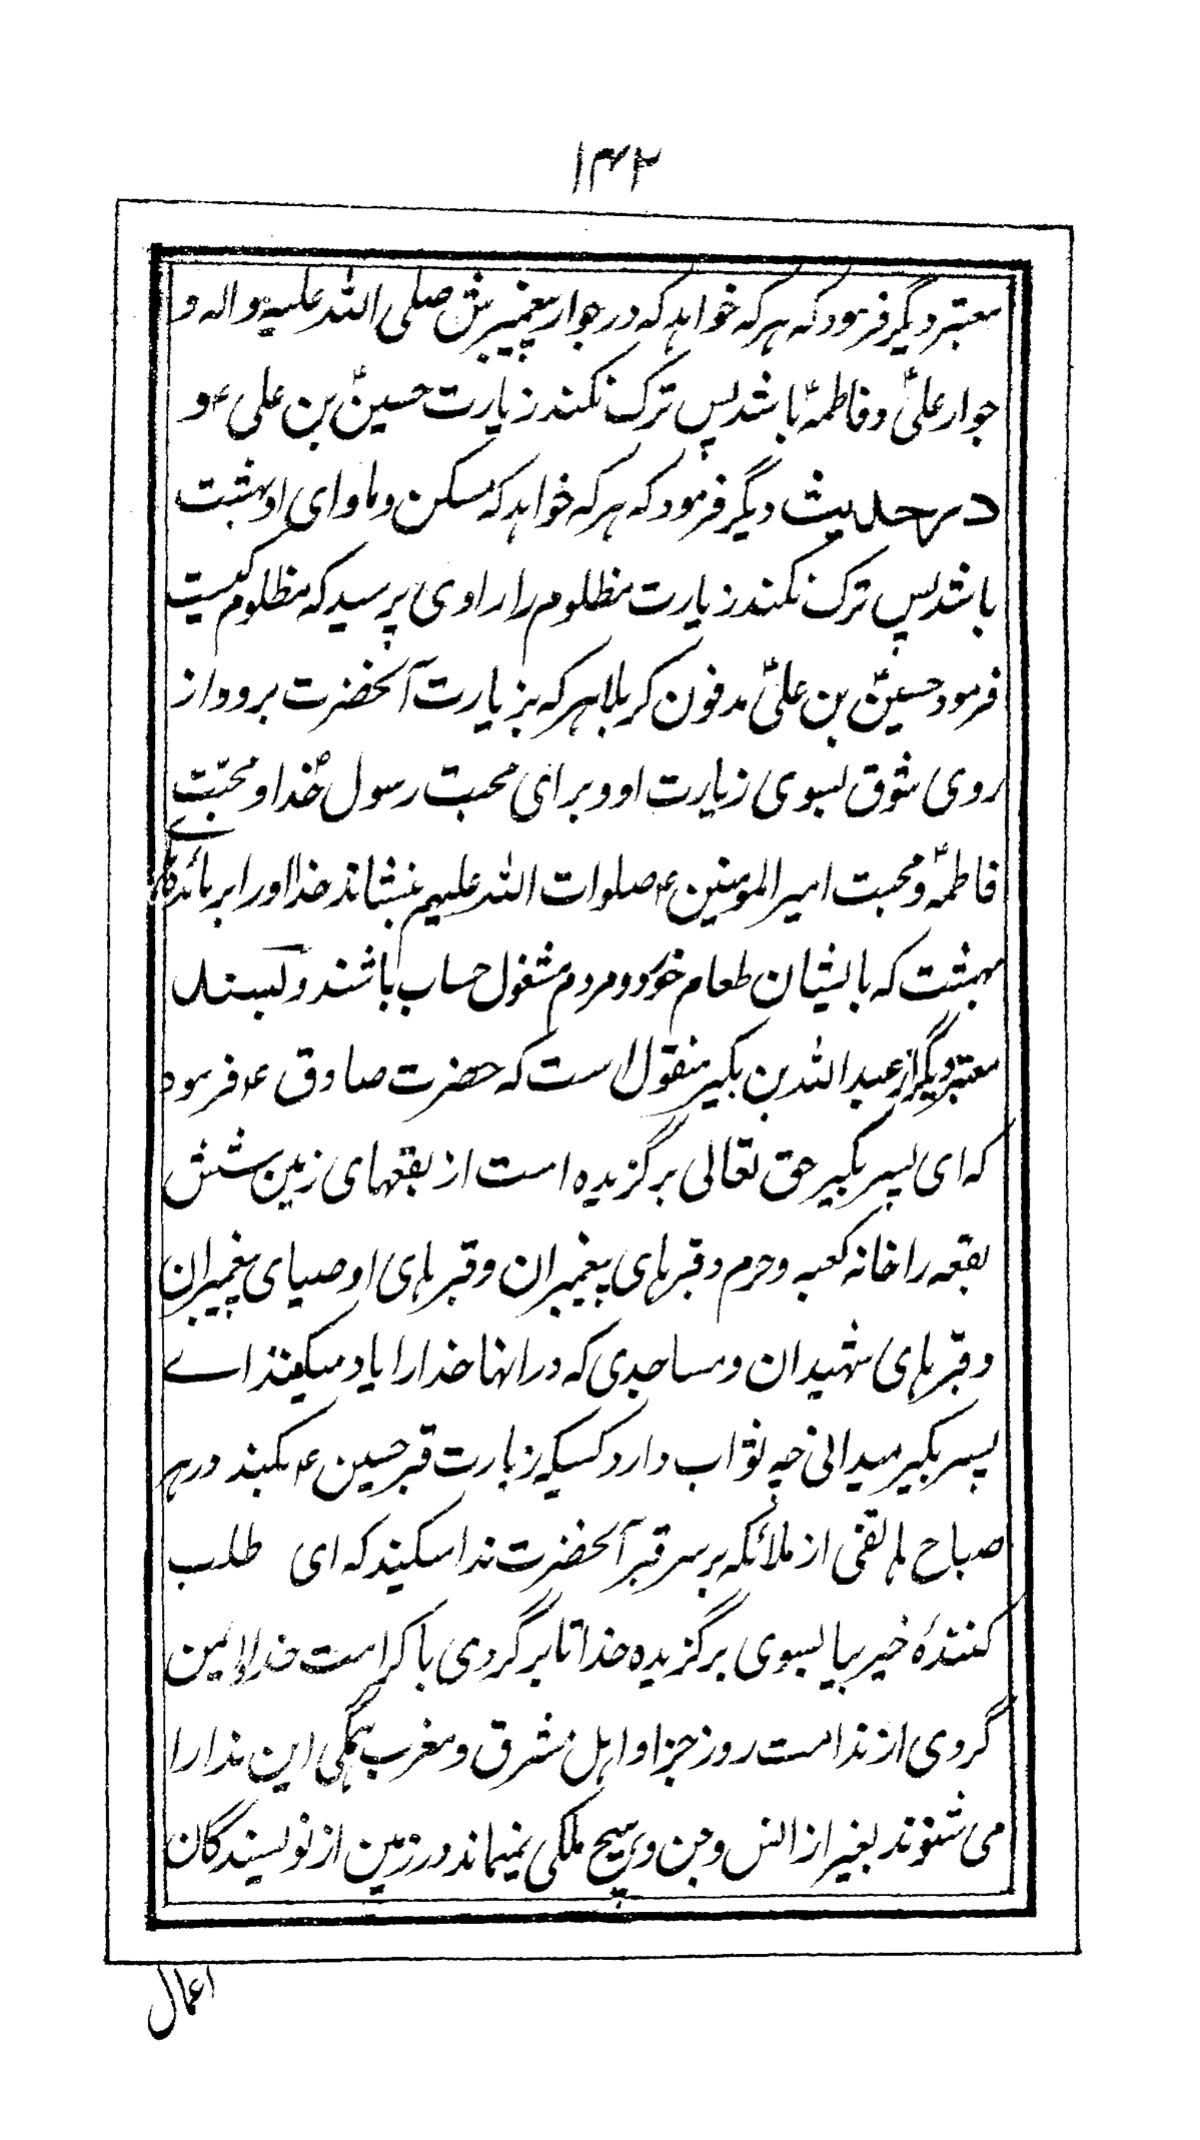 ۱۴۲
معتبر دیگر فرمود که هر که خواهد که در جوار پیغمبرش صلی الله علیه واله و
جوار علیؑ و فاطمهؑ باشد پس ترک نکند زیارت حسینؑ بن علی ع و
در حدیث دیگر فرمود که هر که خواهد که مسکن و ماوای او بهشت
باشد پس ترک نکند زیارت مظلوم را راوی پرسید که مظلوم کیست
فرمود حسینؑ بن علیؑ مدفون کربلا هر که بزیارت آنحضرت برود از
روی شوق بسوی زیارت او و برای محبت رسول خداؐ و محبّت
فاطمهؑ و محبت امیرالمومنین ع صلوات الله علیهم بنشاند خدا او را بر مائدهای
بهشت که با ایشان طعام خورد و مردم مشغول حساب باشند و بسند
معتبر دیگر از عبدالله بن بکیر منقول است که حضرت صادق ع فرمود
که ای پسر بکیر حق تعالی برگزیده است از بقعهای زمین شش
بقعه را خانه کعبه و حرم و قبرهای پیغمبران و قبرهای اوصیای پیغمبران
و قبرهای شهیدان و مساجدی که در انها خدا را یاد میکنند اے
پسر بکیر میدانی چه ثواب دارد کسیکه زیارت قبر حسین ع بکند در هر
صباح هاتفی از ملائکه بر سر قبر آنحضرت ندا میکند که ای طلب
کنندۀ خیر بیا بسوی برگزیده خدا تا برگردی با کرامت خدا و ایمن
گردی از ندامت روز جزا و اهل مشرق و مغرب همگی این ندا را
می شنوند بغیر از انس و جن و هیچ ملکی نمیماند در زمین از نویسندگان
اعمال